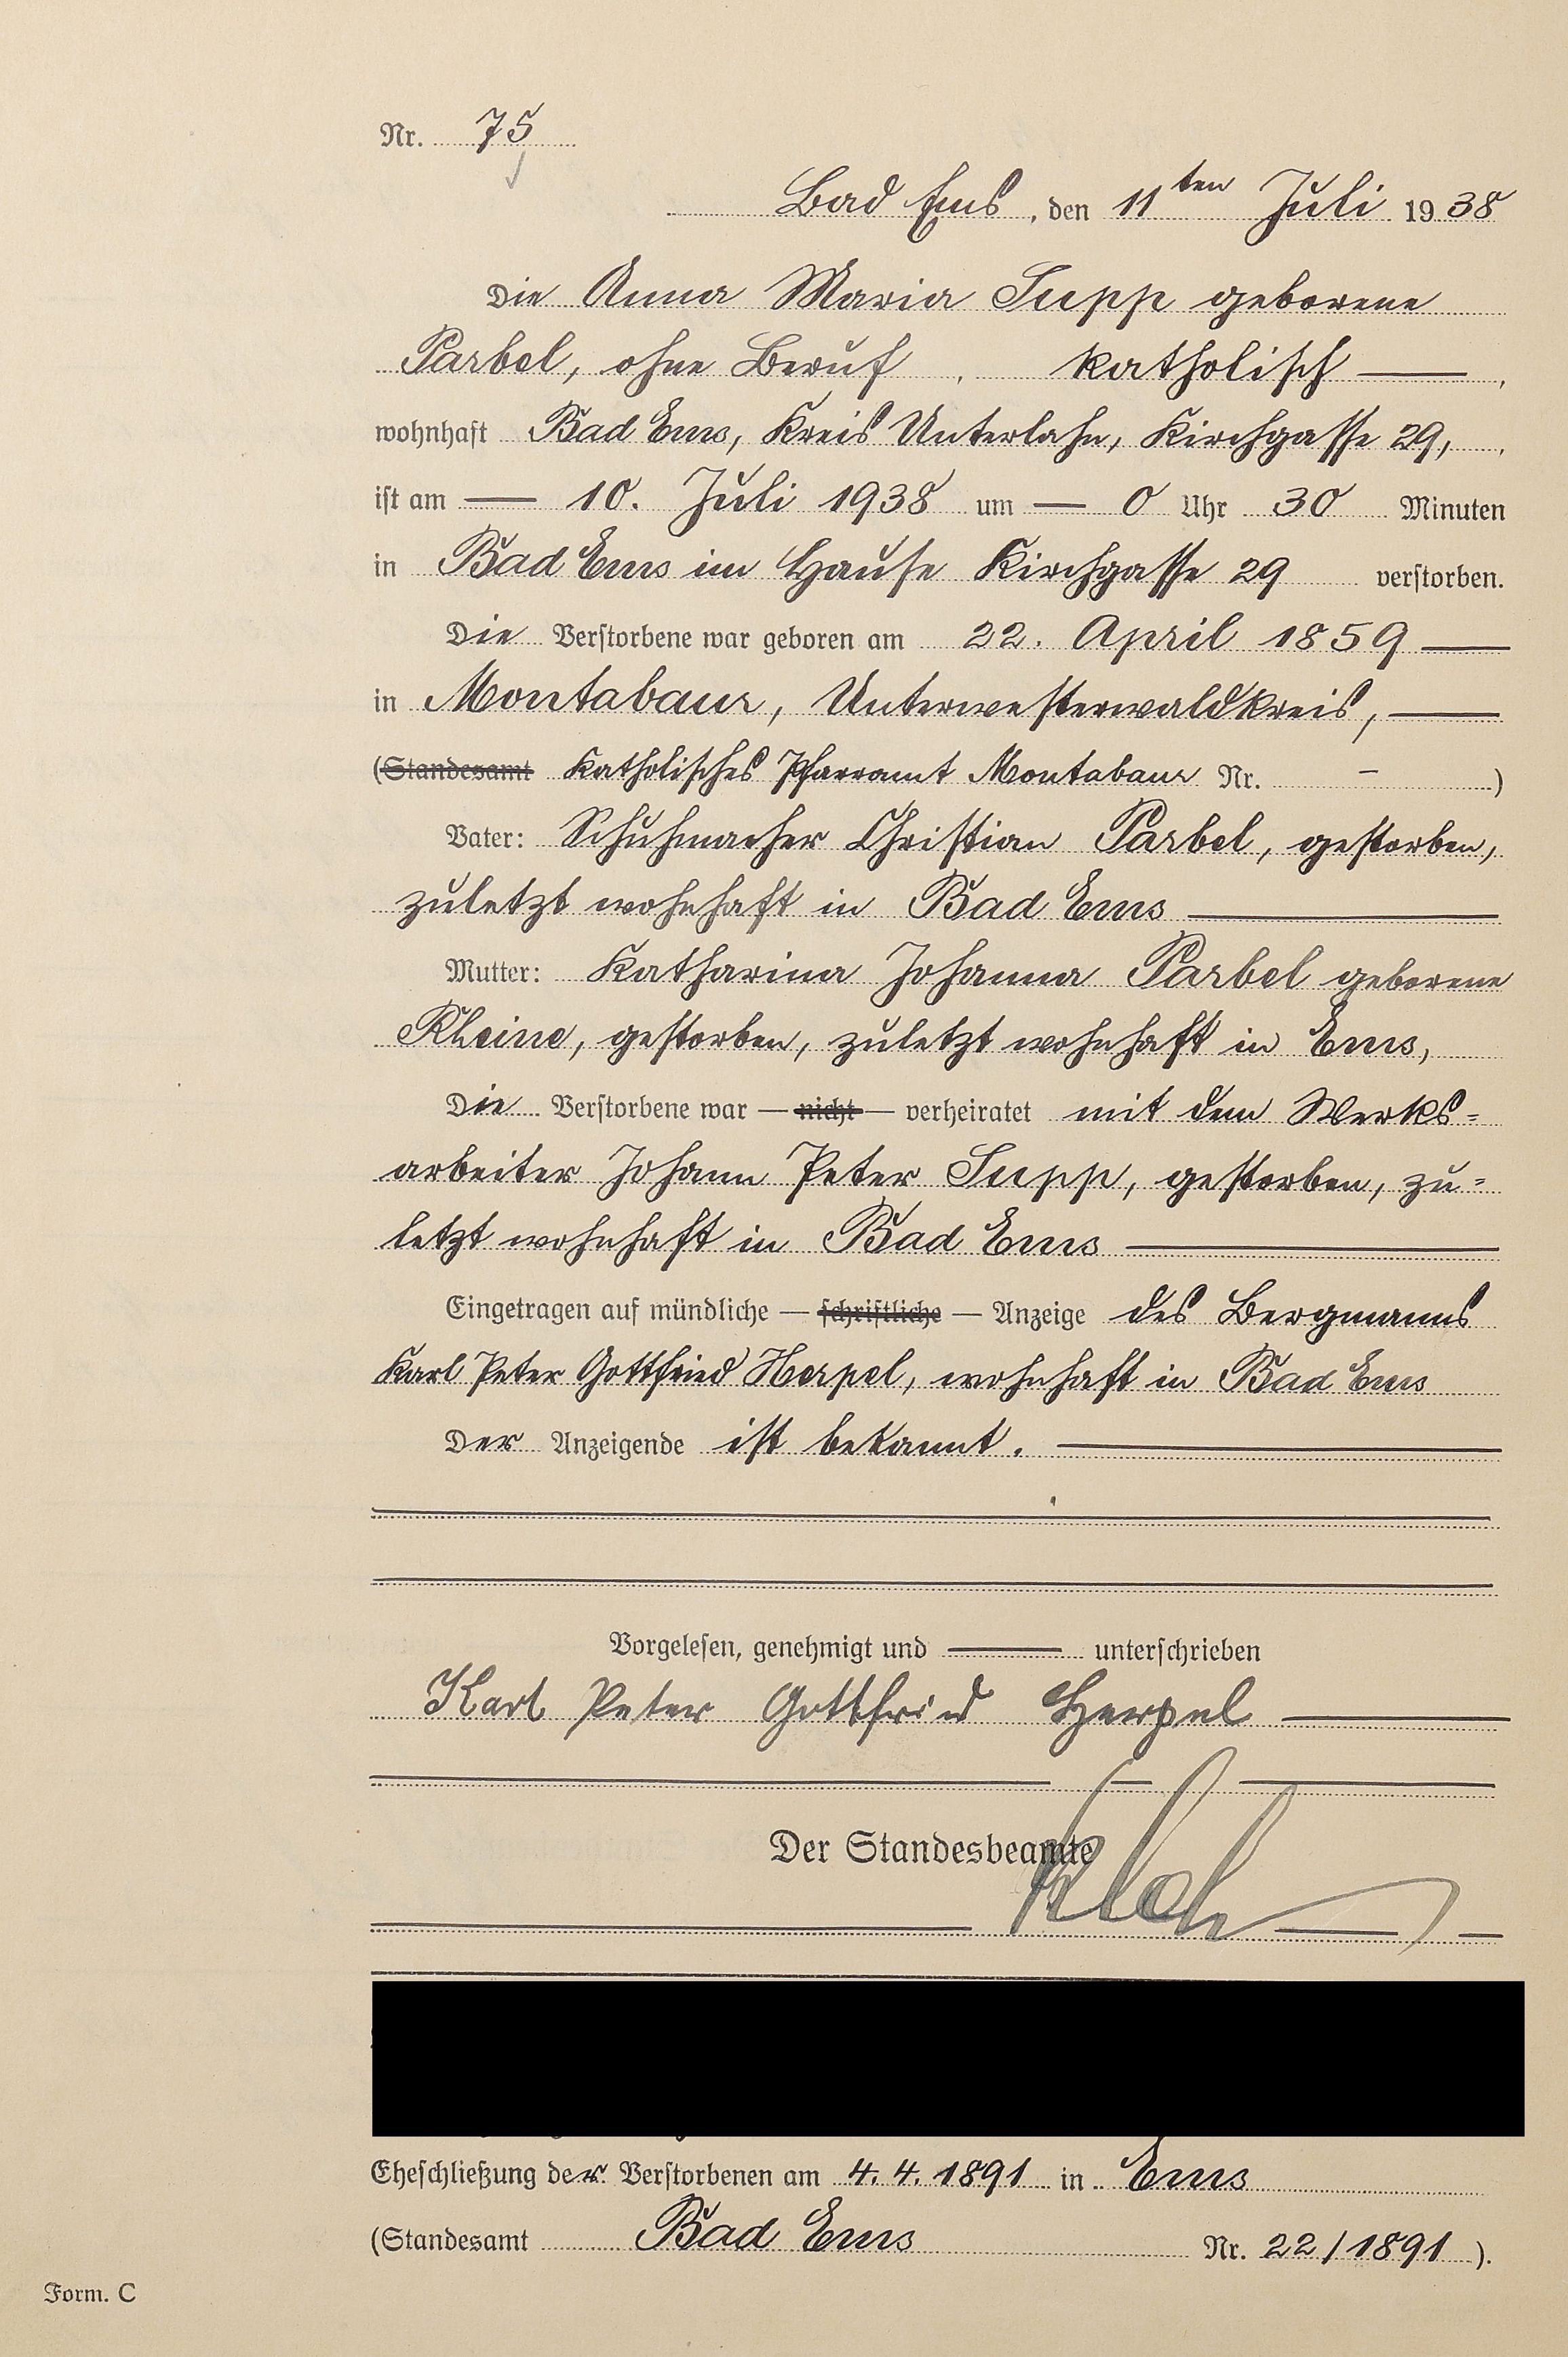 Nr. 75
Bad Ems, den 11ten Juli 1938
Die Anna Maria Supp geborene
Parbel, ohne Beruf, katholisch —,
wohnhaft Bad Ems, Kreis Unterlahn, Kirchgasse 29,
ist am — 10. Juli 1938 um — 0 Uhr 30 Minuten
in Bad Ems im Hause Kirchgasse 29 verstorben.
Die Verstorbene war geboren am 22. April 1859 —
in Montabaur, Unterwesterwaldkreis, —
(Standesamt Katholisches Pfarramt Montabaur Nr. – )
Vater: Schuhmacher Christian Parbel, gestorben,
zuletzt wohnhaft in Bad Ems —
Mutter: Katharina Johanna Parbel geborene
Rheine, gestorben, zuletzt wohnhaft in Ems,
Die Verstorbene war — nicht — verheiratet mit dem Werks=
arbeiter Johann Peter Supp, gestorben, zu=
letzt wohnhaft in Bad Ems —
Eingetragen auf mündliche — schriftliche — Anzeige des Bergmanns
Karl Peter Gottfried Herpel, wohnhaft in Bad Ems
Der Anzeigende ist bekannt. —
Vorgelesen, genehmigt und — unterschrieben
Karl Peter Gottfried Herpel —
Der Standesbeamte
Eheschließung der Verstorbenen am 4. 4. 1891 in Ems
(Standesamt Bad Ems Nr. 22/1891 ).
Form. C